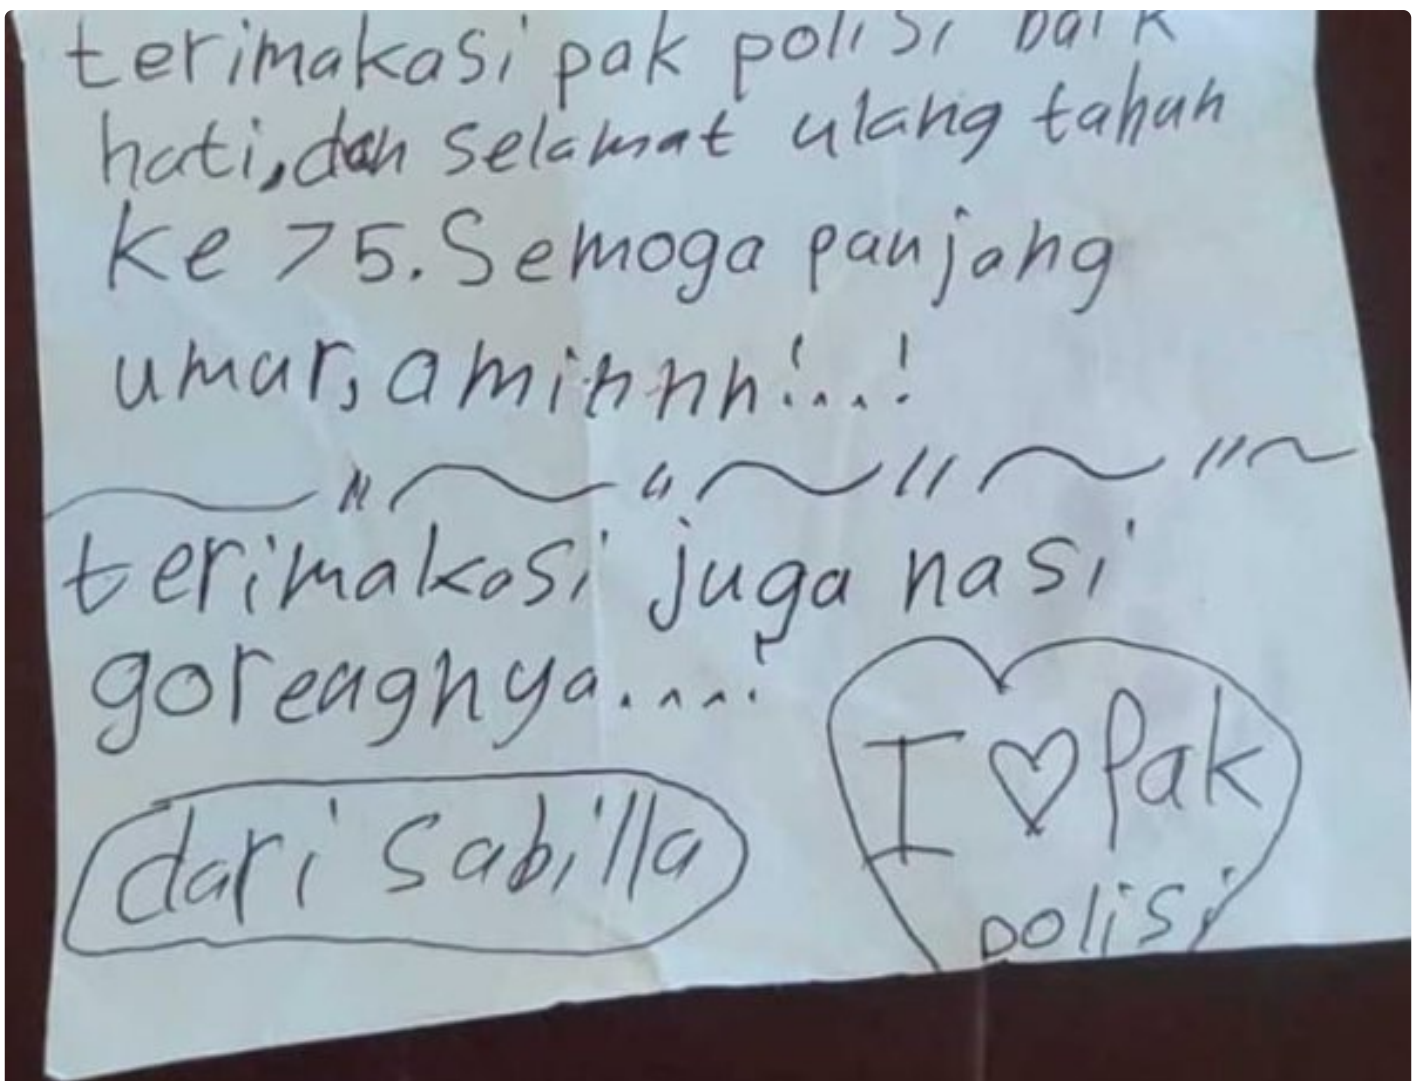 terimakasi pak polisi baik
hati, dan selamat ulang tahun
ke 75. Semoga panjang
umur, aminnn!...!
terimakasi juga nasi
goreagnya....!
dari sabilla
I ♡ Pak
polisi